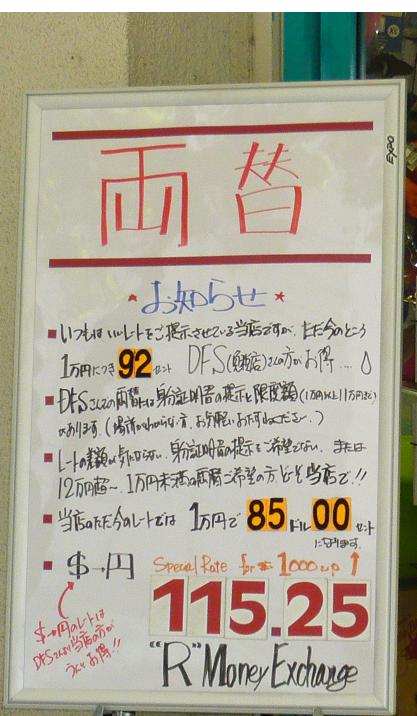 EXPO
両替
★お知らせ★
■いつもは いいレートをご提示させている当店ですが、ただ今のところ
1万円につき92セント DFS(免税店)さんの方がお得....
■DFSさんでの両替には身分証明書の提示と限度額(1万円以上11万円まで)
があります。(場所がわからない方、お気軽におたずねください。)
■レートの差額が気にならない、身分証明書の提示をご希望でない、または
12万円超~、1万円未満の両替ご希望の方、どーぞ当店で!!
■当店のただ今のレートでは 1万円で 85ドル00セント
になります。
■$→円 Special Rate for 1000 up↑
115.25
$→円のレートは
DFSさんより当店の方が
うんとお得!!
"R" Money Exchange